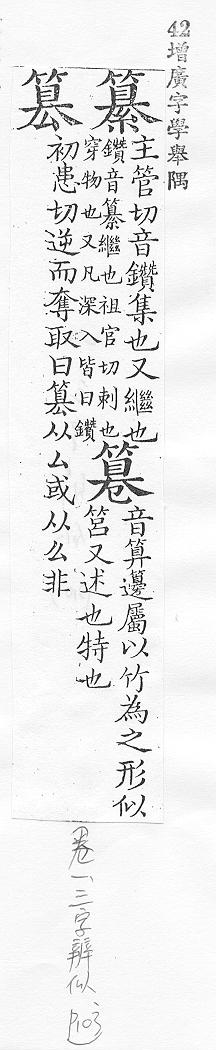 42增廣字學舉隅
纂
主管切音鑽集也又繼也
鑽音纂繼也祖官切刺也
穿物也又凡深入皆曰鑽
篹
音算邊屬以竹為之形似
筥又述也特也
篡
初患切逆而奪取曰篡从厶或从么非
卷一、三字辨似 P103